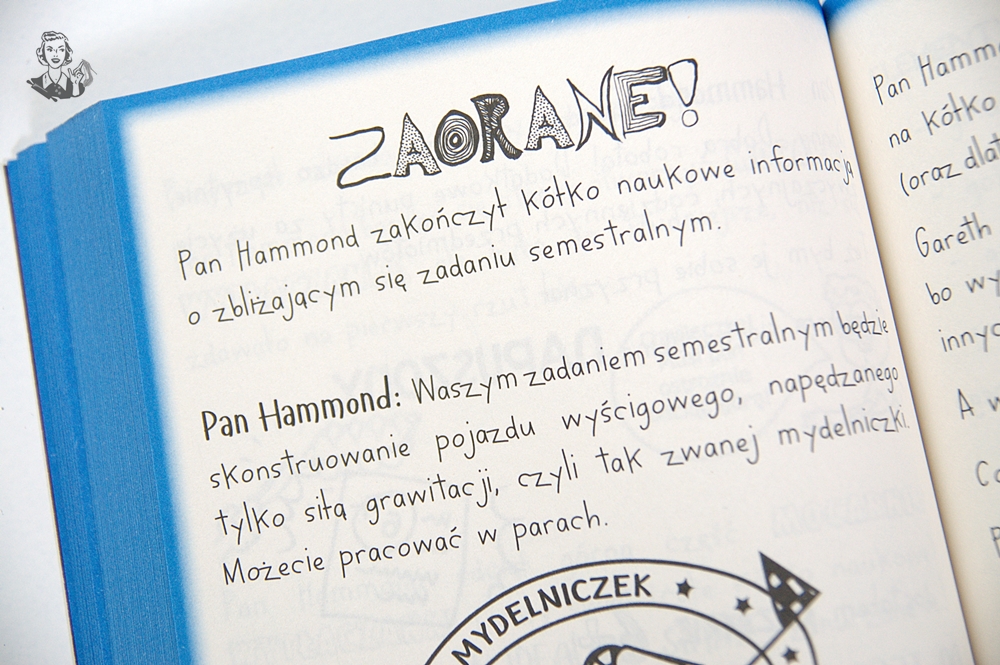 ZAORANE!
Pan Hammond zakończył kółko naukowe informacją
o zbliżającym się zadaniu semestralnym.
Pan Hammond: Waszym zadaniem semestralnym będzie
skonstruowanie pojazdu wyścigowego, napędzanego
tylko siłą grawitacji, czyli tak zwanej mydelniczki.
Możecie pracować w parach.
MYDELNICZEK
Pan
na kółko
(oraz
Gareth
bo
A